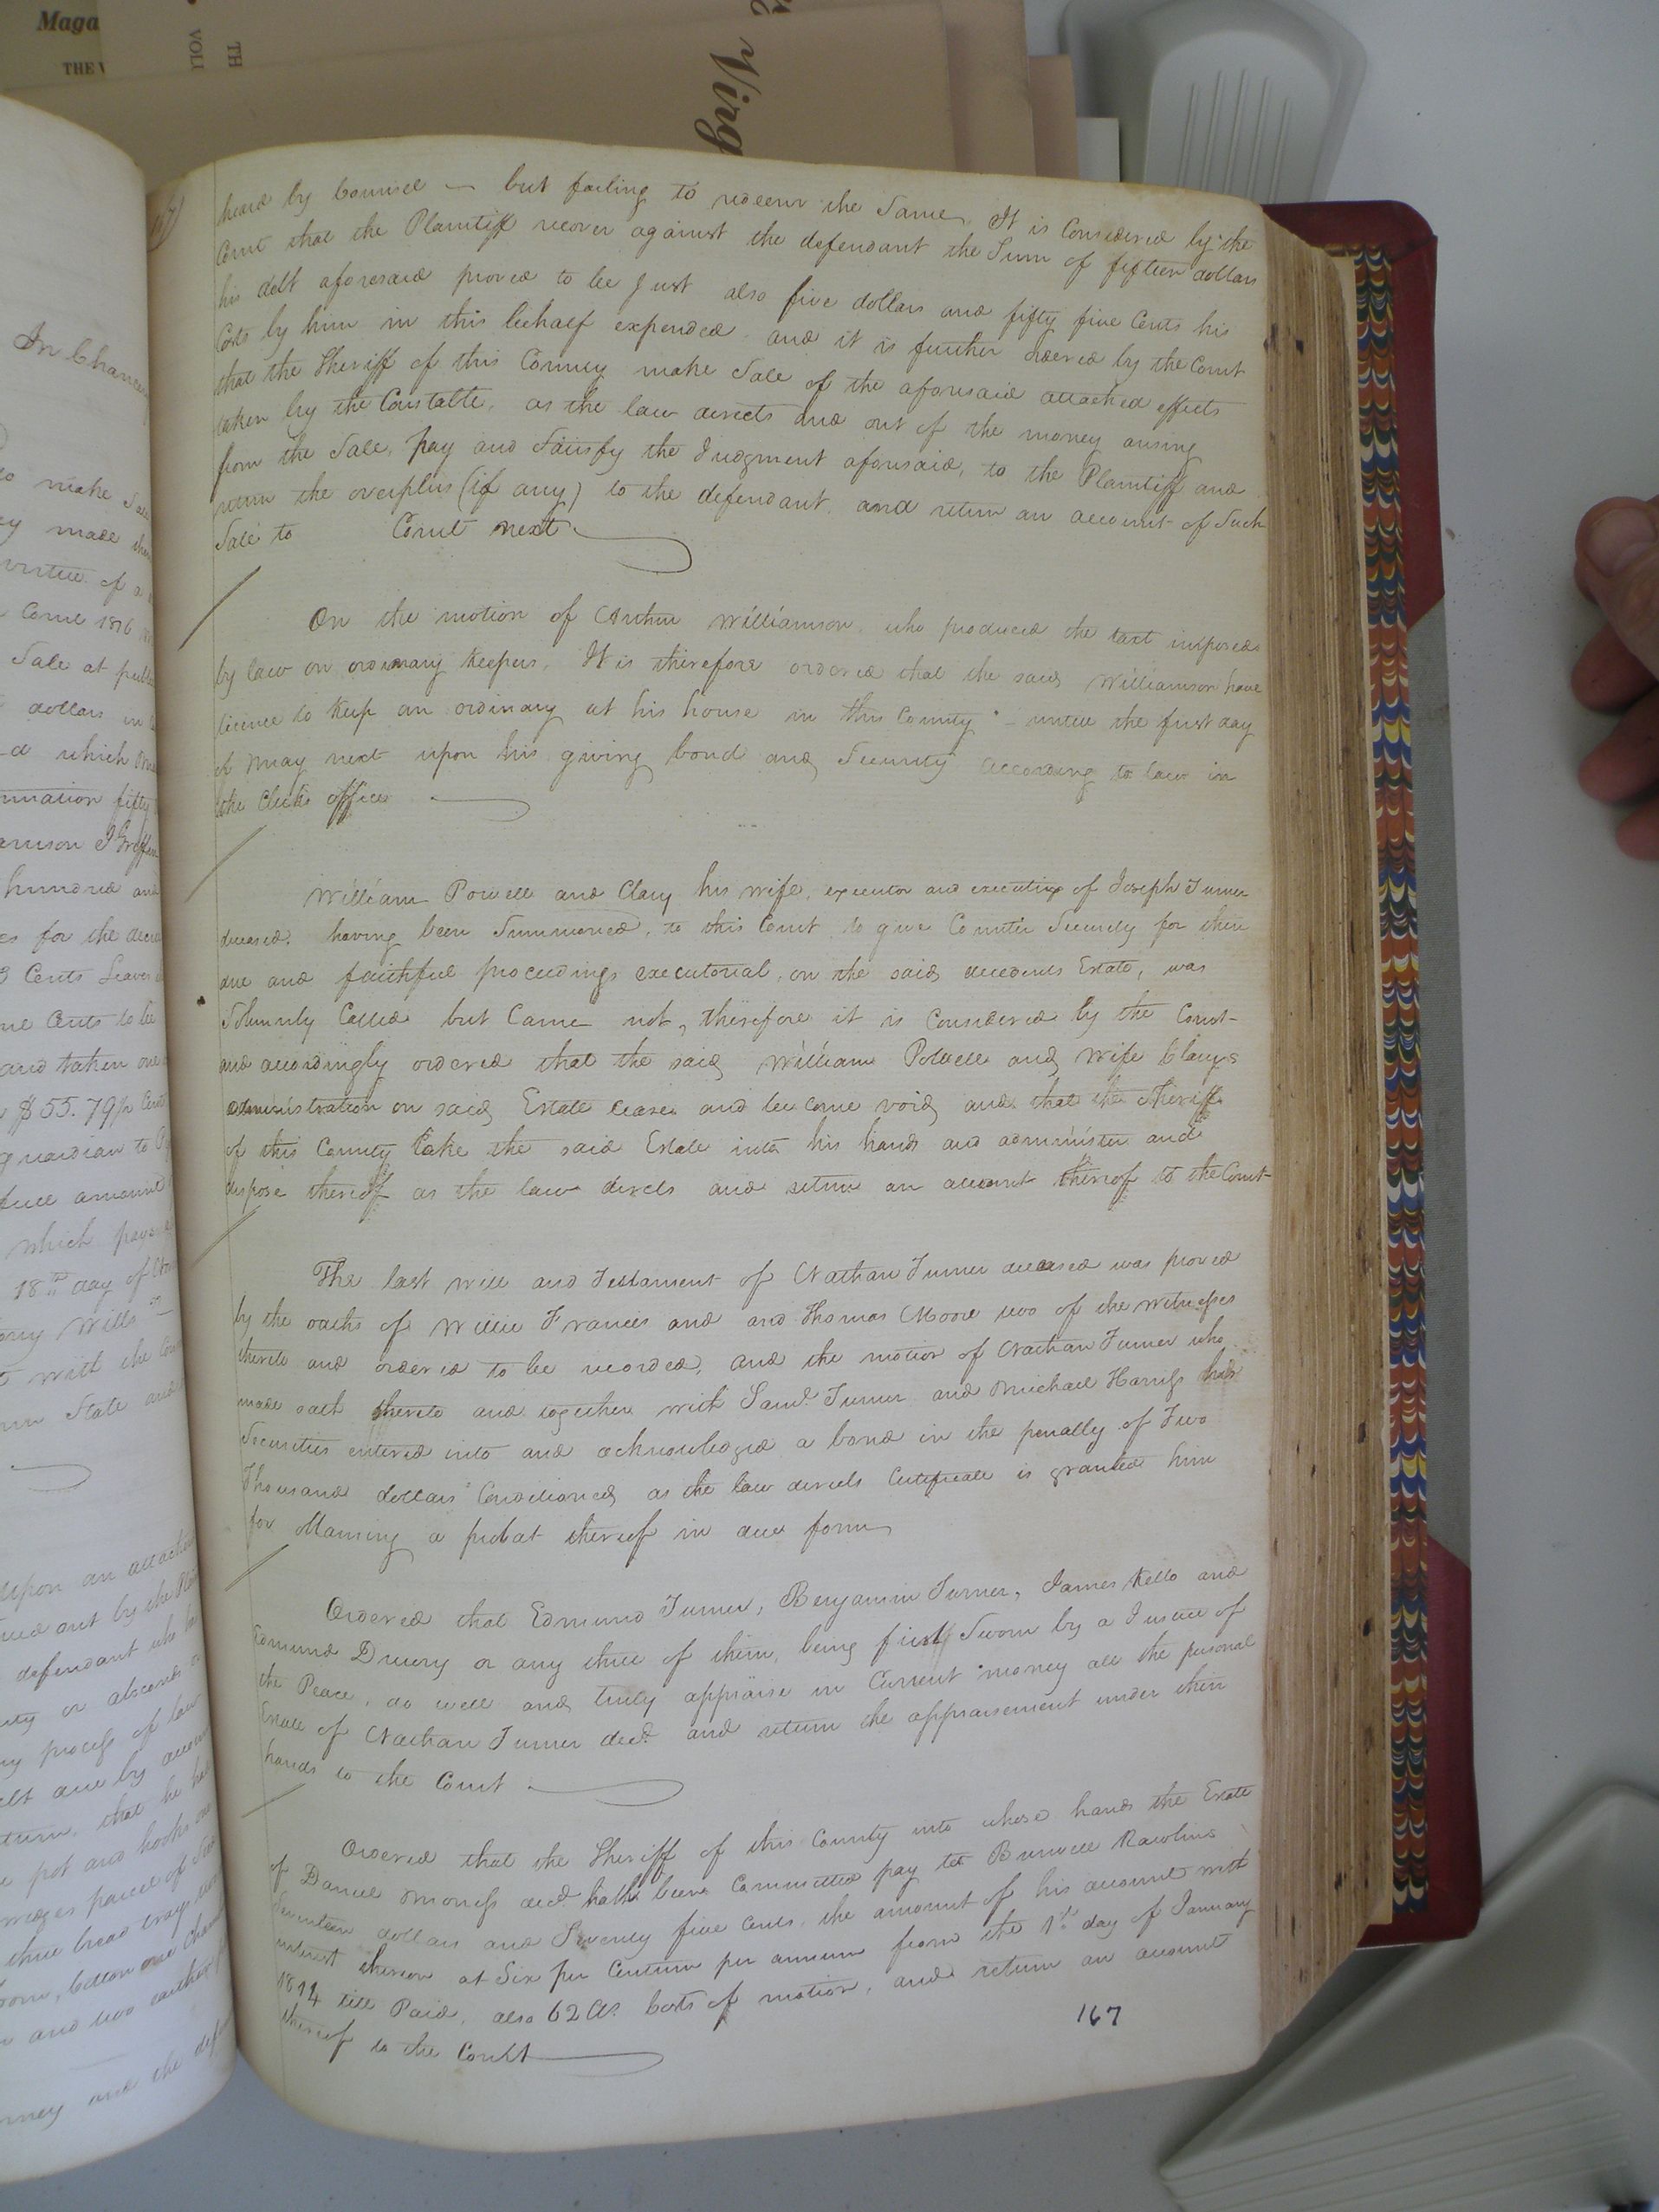 Maga
THE V
VOLU
TH
Virg
In Chance
to make Sale
ey made
virtue of a
Court 1816
Sale at publi
dollars in
d which
mation fifty
amson J Griffin
hundred and
es for the decree
3 Cents Leaves
ne Cents to be
and taken one
$55.79 p Cent
guardian to
full amount
which pays
18th day of
Wills
with the
State and
upon an attach
sued out by the Pla
defendant who h
ty or absconds
ny process of law
debt due by accou
turn, that he ha
pot and hooks
wedges parcel of
three bread trays
cotton one chan
and two earthen
rney and the def
heard by Counsel — but failing to redeem the Same It is Considered by the
Court that the Plaintiff recover against the defendant the Sum of fifteen dollars
his debt aforesaid proved to be Just also five dollars and fifty five Cents his
Costs by him in this behalf expended and it is further ordered by the Court
that the Sheriff of this County make Sale of the aforesaid attached effects
taken by the Constable, as the law directs and out of the money arising
from the Sale, pay and Satisfy the Judgment aforesaid, to the Plaintiff and
return the overplus (if any) to the defendant, and return an account of Such
Sale to Court next
On the motion of Arthur Williamson, who produced the taxt imposed
by law on ordinary Keepers, It is therefore ordered that the said Williamson have
licence to Keep an ordinary at his house in this County — untill the first day
of May next upon his giving bond and Security according to law in
the Clerks office
William Powell and Clary his wife, executor and executrix of Joseph Turner
deceased, having been Summoned, to this Court to give Counter Security for their
due and faithful proceedings executorial, on the said decedents Estate, was
Solemnly Called but Came not, therefore it is Considered by the Court
and accordingly ordered that the said William Powell and wife Clary's
administration on said Estate cease and become void and that the Sheriff
of this County take the said Estate into his hands and administer and
dispose thereof as the law directs and return an account thereof to the Court
The last will and Testament of Nathan Turner deceased was proved
by the oaths of Willie Francis and and Thomas Moore two of the witnesses
thereto and ordered to be recorded, and the motion of Nathan Turner who
made oath thereto and together with Saml. Turner and Michael Harriss his
Securities entered into and acknowledged a bond in the penalty of Two
Thousand dollars Conditioned as the law directs Certificate is granted him
for obtaining a probat thereof in due form
Ordered that Edmund Turner, Benjamin Turner, James Kello and
Edmund Drewry or any three of them, being first Sworn by a Justice of
the Peace, do well and truly appraise in Current money all the personal
Estate of Nathan Turner decd. and return the appraisement under their
hands to the Court
Ordered that the Sheriff of this County into whose hands the Estate
of Daniel decd. hath been Committed pay to Burwell Rawlins
Seventeen dollars and Seventy five Cents, the amount of his account with
interest thereon at Six per Centum per annum from the 1st day of January
1814 till Paid, also 62 Cts. Costs of motion, and return an account
thereof to the Court
167